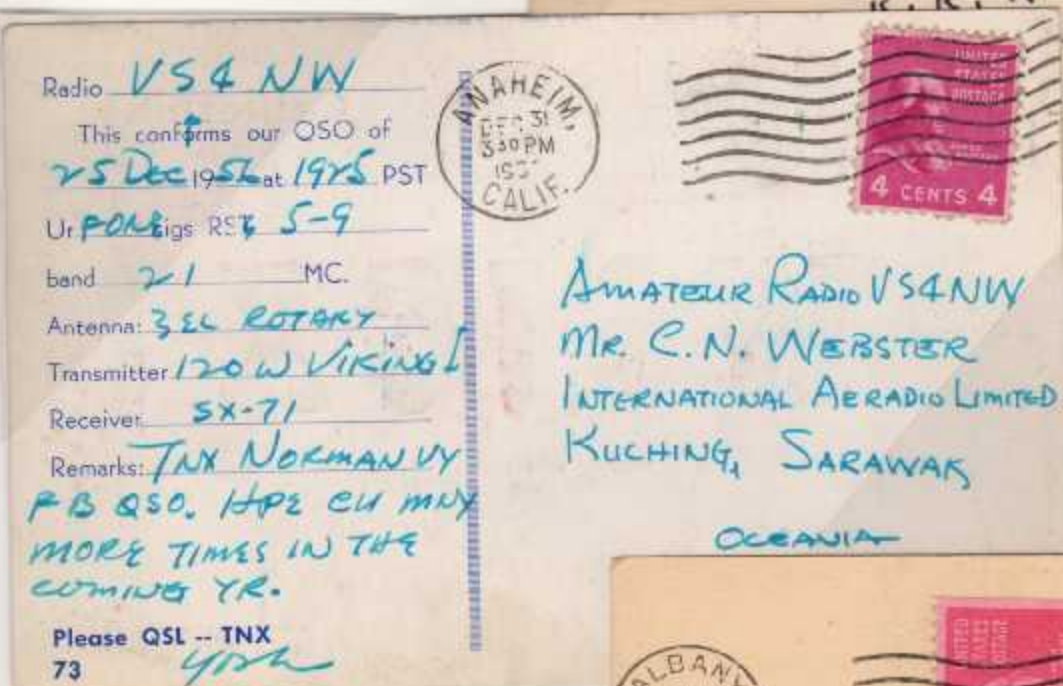 Radio VS4NW
This confirms our QSO of
25 Dec 1956 at 1925 PST
Ur FONE sigs RST 5-9
band 21 MC.
Antenna: 3 EL ROTARY
Transmitter 120 W VIKING I
Receiver SX-71
Remarks: TNX NORMAN VY
FB QSO. HPE CU MNY
MORE TIMES IN THE
COMING YR.
Please QSL -- TNX
73 York
ANAHEIM,
DEC 31
330 PM
CALIF.
UNITED
STATES
POSTAGE
4 CENTS 4
AMATEUR RADIO VS4NW
MR. C.N. WEBSTER
INTERNATIONAL AERADIO LIMITED
KUCHING, SARAWAK
OCEANIA
ALBANY
UNITED
STATES
POSTAGE